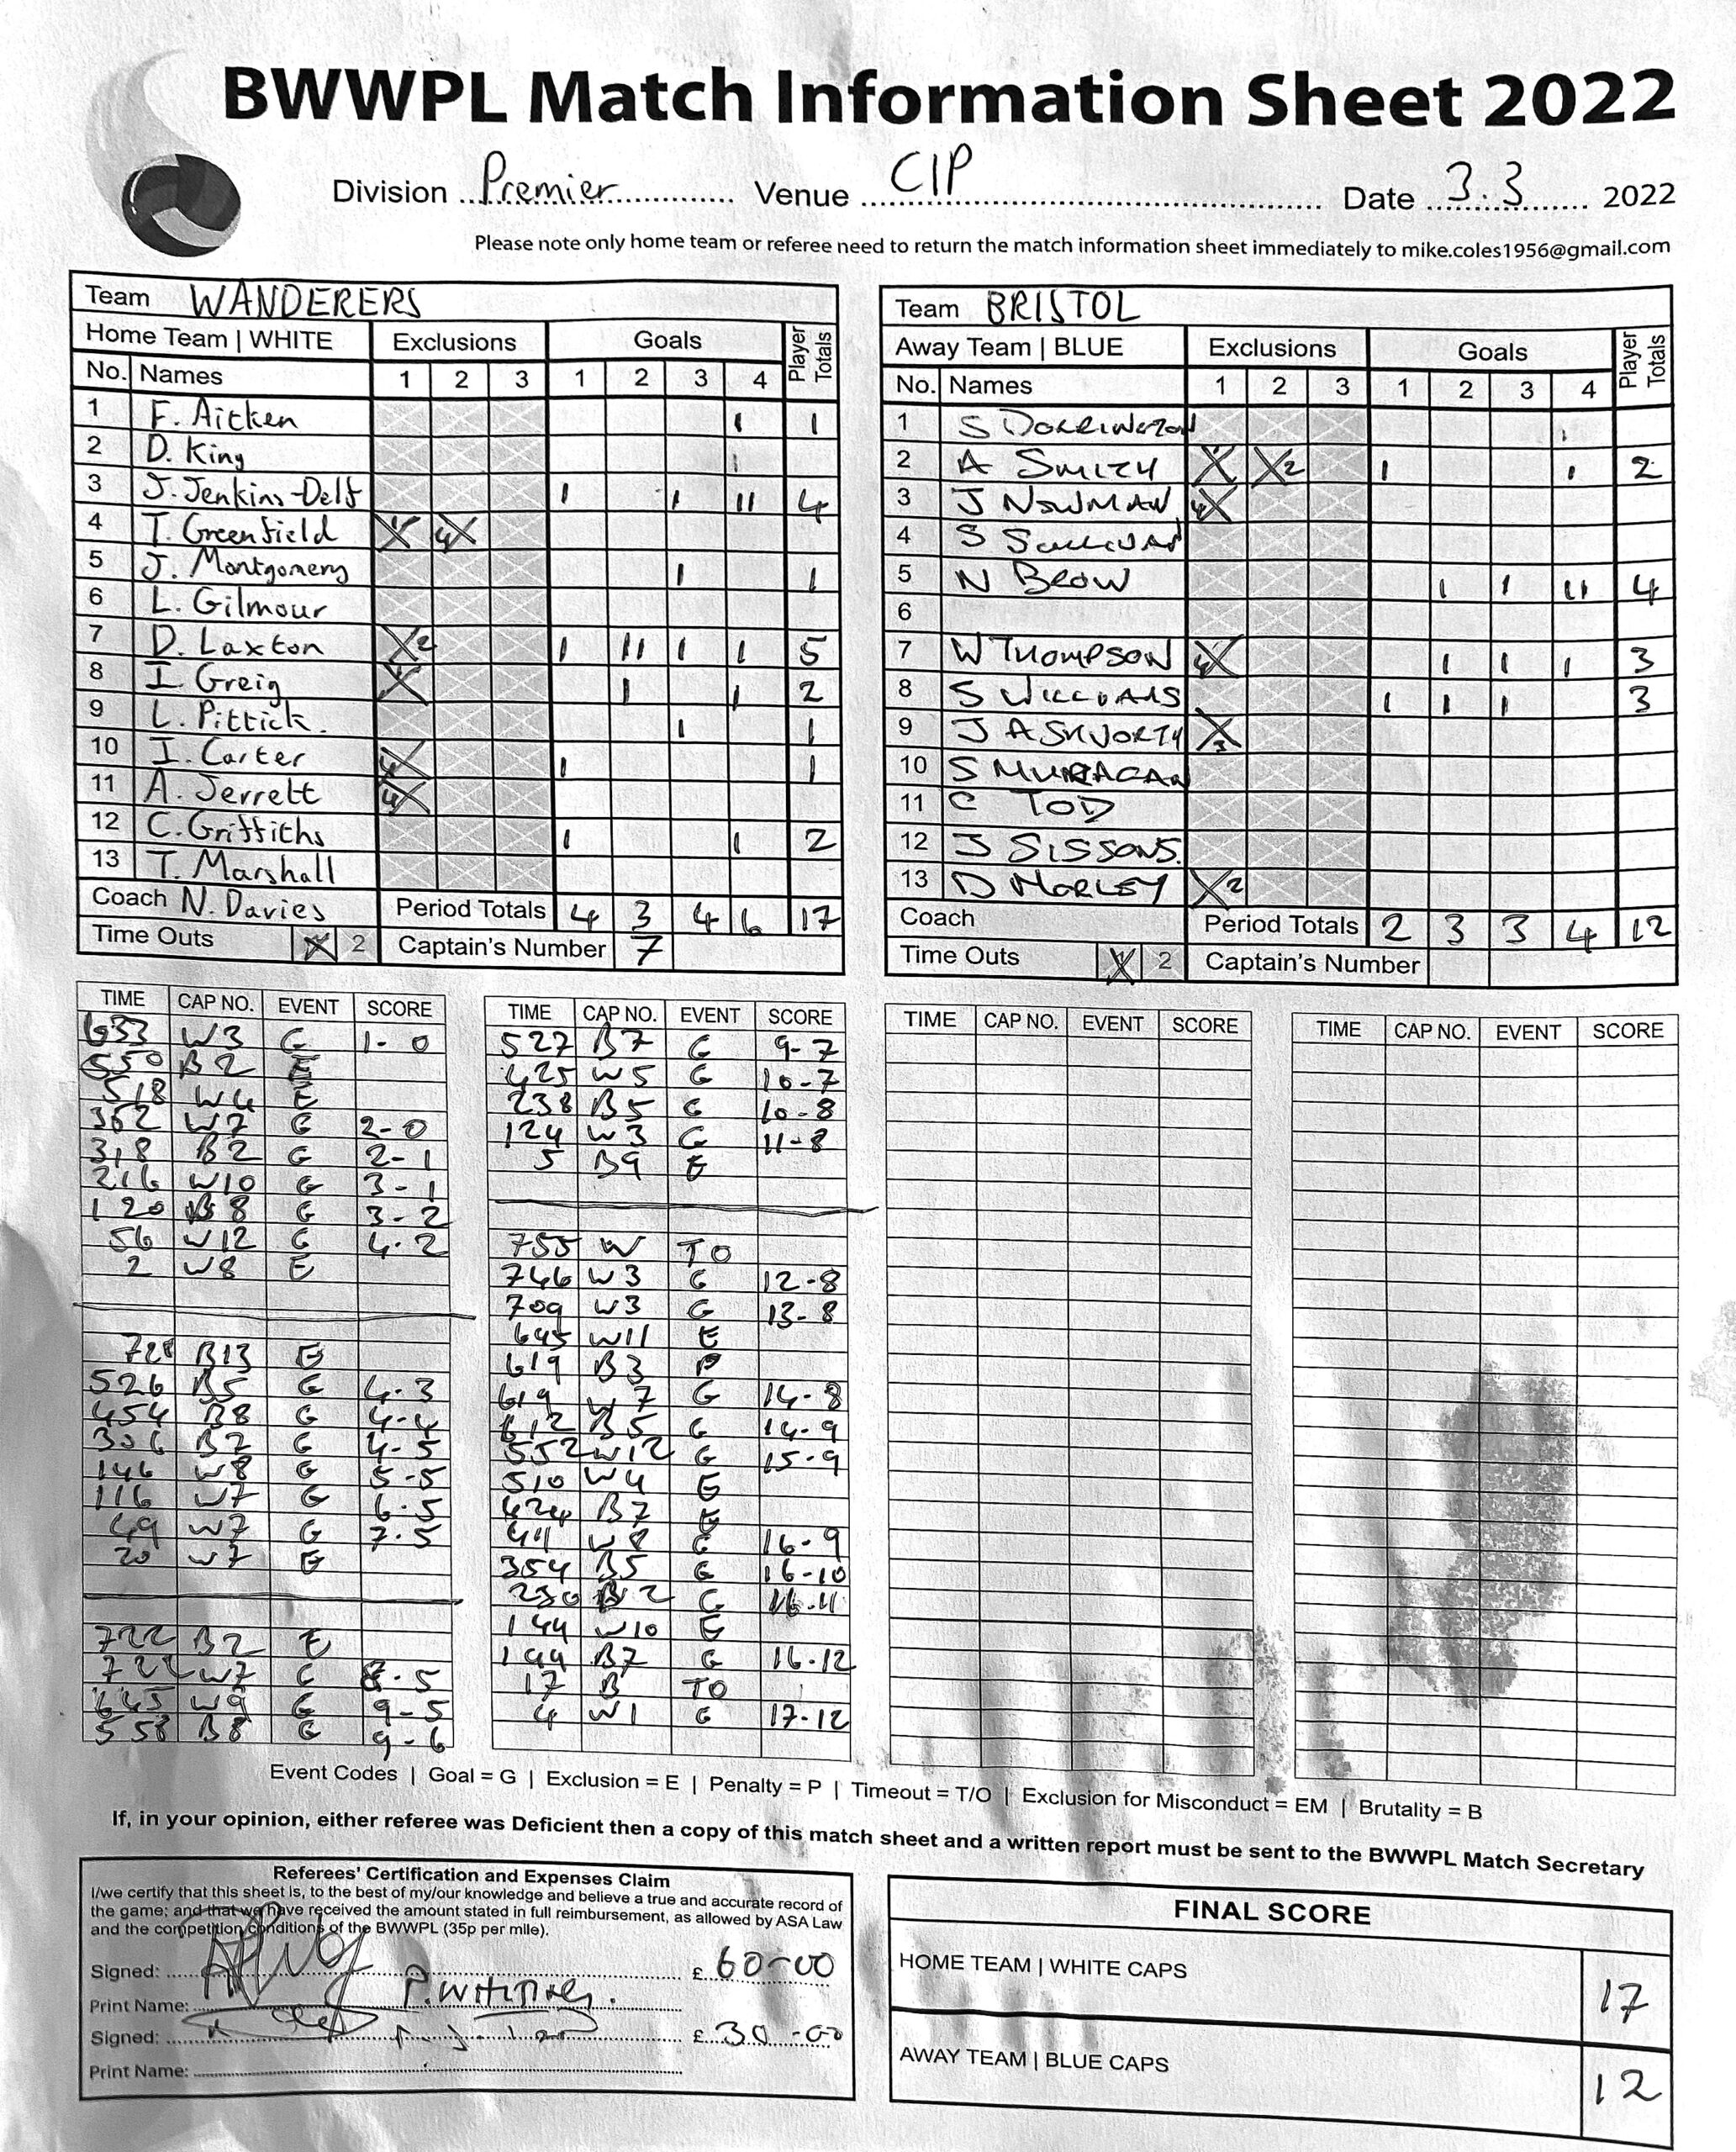 BWWPL Match Information Sheet 2022
Division Premier Venue CIP Date 3.3 2022
Please note only home team or referee need to return the match information sheet immediately to mike.coles1956@gmail.com
Team WANDERERS
Home Team | WHITE Exclusions Goals Player Totals
No. Names 1 2 3 1 2 3 4
1 F. Aitken 1 1
2 D. King
3 J. Jenkins-Delf 1 1 11 4
4 T. Greenfield X 4X
5 J. Montgomery 1 1
6 L. Gilmour
7 D. Laxton X2 1 11 1 1 5
8 I. Greig X 1 1 2
9 L. Pittick. 1 1
10 I. Carter 4X 1 1
11 A. Jerrett 4X
12 C. Griffiths 1 1 2
13 T. Marshall
Coach N. Davies Period Totals 4 3 4 6 17
Time Outs X 2 Captain's Number 7
Team BRISTOL
Away Team | BLUE Exclusions Goals Player Totals
No. Names 1 2 3 1 2 3 4
1 S DORRINGTON
2 A SMITH X X2 1 1 2
3 J NEWMAN 4X
4 S SULLIVAN
5 N BROW 1 1 11 4
6
7 W THOMPSON 4X 1 1 1 3
8 S WILLIAMS 1 1 1 3
9 J ASHWORTH X3
10 S
11 C TOD
12 J SISSONS.
13 D MORLEY X2
Coach Period Totals 2 3 3 4 12
Time Outs X 2 Captain's Number
TIME CAP NO. EVENT SCORE
633 W3 G 1-0
550 B2 E
518 W4 E
352 W7 G 2-0
318 B2 G 2-1
216 W10 G 3-1
120 B8 G 3-2
56 W12 G 4-2
2 W8 E
728 B13 E
526 B5 G 4-3
454 B8 G 4-4
306 B7 G 4-5
146 W8 G 5-5
116 W7 G 6-5
49 W7 G 7-5
20 W7 E
722 B2 E
722 W7 G 8-5
645 W9 G 9-5
558 B8 G 9-6
TIME CAP NO. EVENT SCORE
527 B7 G 9-7
425 W5 G 10-7
238 B5 G 10-8
124 W3 G 11-8
5 B9 E
755 W TO
746 W3 G 12-8
709 W3 G 13-8
645 W11 E
619 B3 P
619 W7 G 14-8
612 B5 G 14-9
552 W12 G 15-9
510 W4 E
424 B7 E
411 W8 G 16-9
354 B5 G 16-10
230 B2 G 16-11
144 W10 E
144 B7 G 16-12
17 B TO
4 W1 G 17-12
TIME CAP NO. EVENT SCORE
TIME CAP NO. EVENT SCORE
Event Codes | Goal = G | Exclusion = E | Penalty = P | Timeout = T/O | Exclusion for Misconduct = EM | Brutality = B
If, in your opinion, either referee was Deficient then a copy of this match sheet and a written report must be sent to the BWWPL Match Secretary
Referees' Certification and Expenses Claim
I/we certify that this sheet is, to the best of my/our knowledge and believe a true and accurate record of
the game; and that we have received the amount stated in full reimbursement, as allowed by ASA Law
and the competition conditions of the BWWPL (35p per mile).
Signed: £ 60-00
Print Name:
Signed: £ 30-00
Print Name:
FINAL SCORE
HOME TEAM | WHITE CAPS 17
AWAY TEAM | BLUE CAPS 12